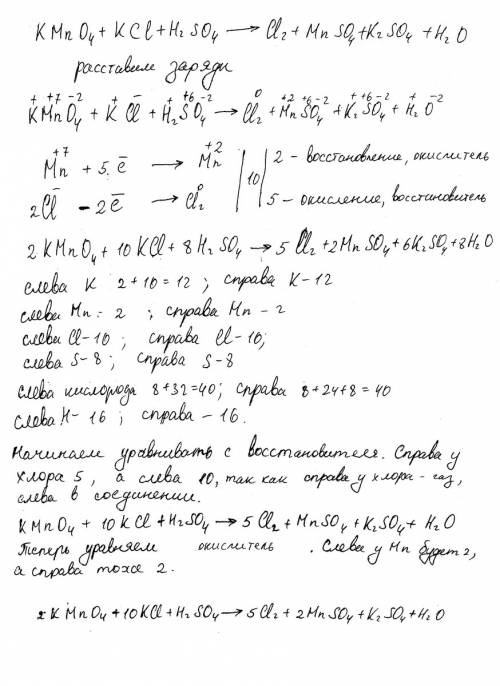 KMnO₄ + KCl + H₂SO₄ ⟶ Cl₂ + MnSO₄ + K₂SO₄ + H₂O
расставим заряды
+ +7 -2 + - + +6 -2 0 +2 +6 -2 + +6 -2 + -2
KMnO₄ + KCl + H₂SO₄ ⟶ Cl₂ + MnSO₄ + K₂SO₄ + H₂O
Mn⁺⁷ + 5ē ⟶ Mn⁺² | 10 | 2 - восстановление, окислитель
2Cl⁻ - 2ē ⟶ Cl₂⁰ | 5 - окисление, восстановитель
2KMnO₄ + 10KCl + 8H₂SO₄ ⟶ 5Cl₂ + 2MnSO₄ + 6K₂SO₄ + 8H₂O
слева K 2+10=12 ; справа K-12
слева Mn - 2 ; справа Mn - 2
слева Cl-10 ; справа Cl-10;
слева S-8 ; справа S-8
слева кислорода 8+32=40; справа 8+24+8=40
слева H-16 ; справа -16.
Начинаем уравнивать с восстановителя. Справа у
хлора 5, а слева 10, так как справа у хлора - газ,
слева в соединении.
KMnO₄ + 10KCl + H₂SO₄ ⟶ 5Cl₂ + MnSO₄ + K₂SO₄ + H₂O
Теперь уравняем окислитель . Слева у Mn будет 2,
а справа тоже 2.
2KMnO₄ + 10KCl + H₂SO₄ ⟶ 5Cl₂ + 2MnSO₄ + K₂SO₄ + H₂O